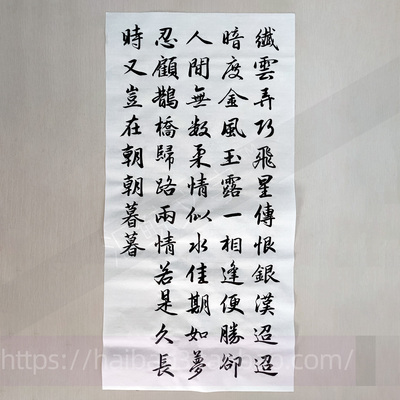 纖雲弄巧飛星傳恨銀漢迢迢
暗度金風玉露一相逢便勝卻
人間無数柔情似水佳期如夢
忍顧鵲橋歸路兩情若是久長
時又豈在朝朝暮暮